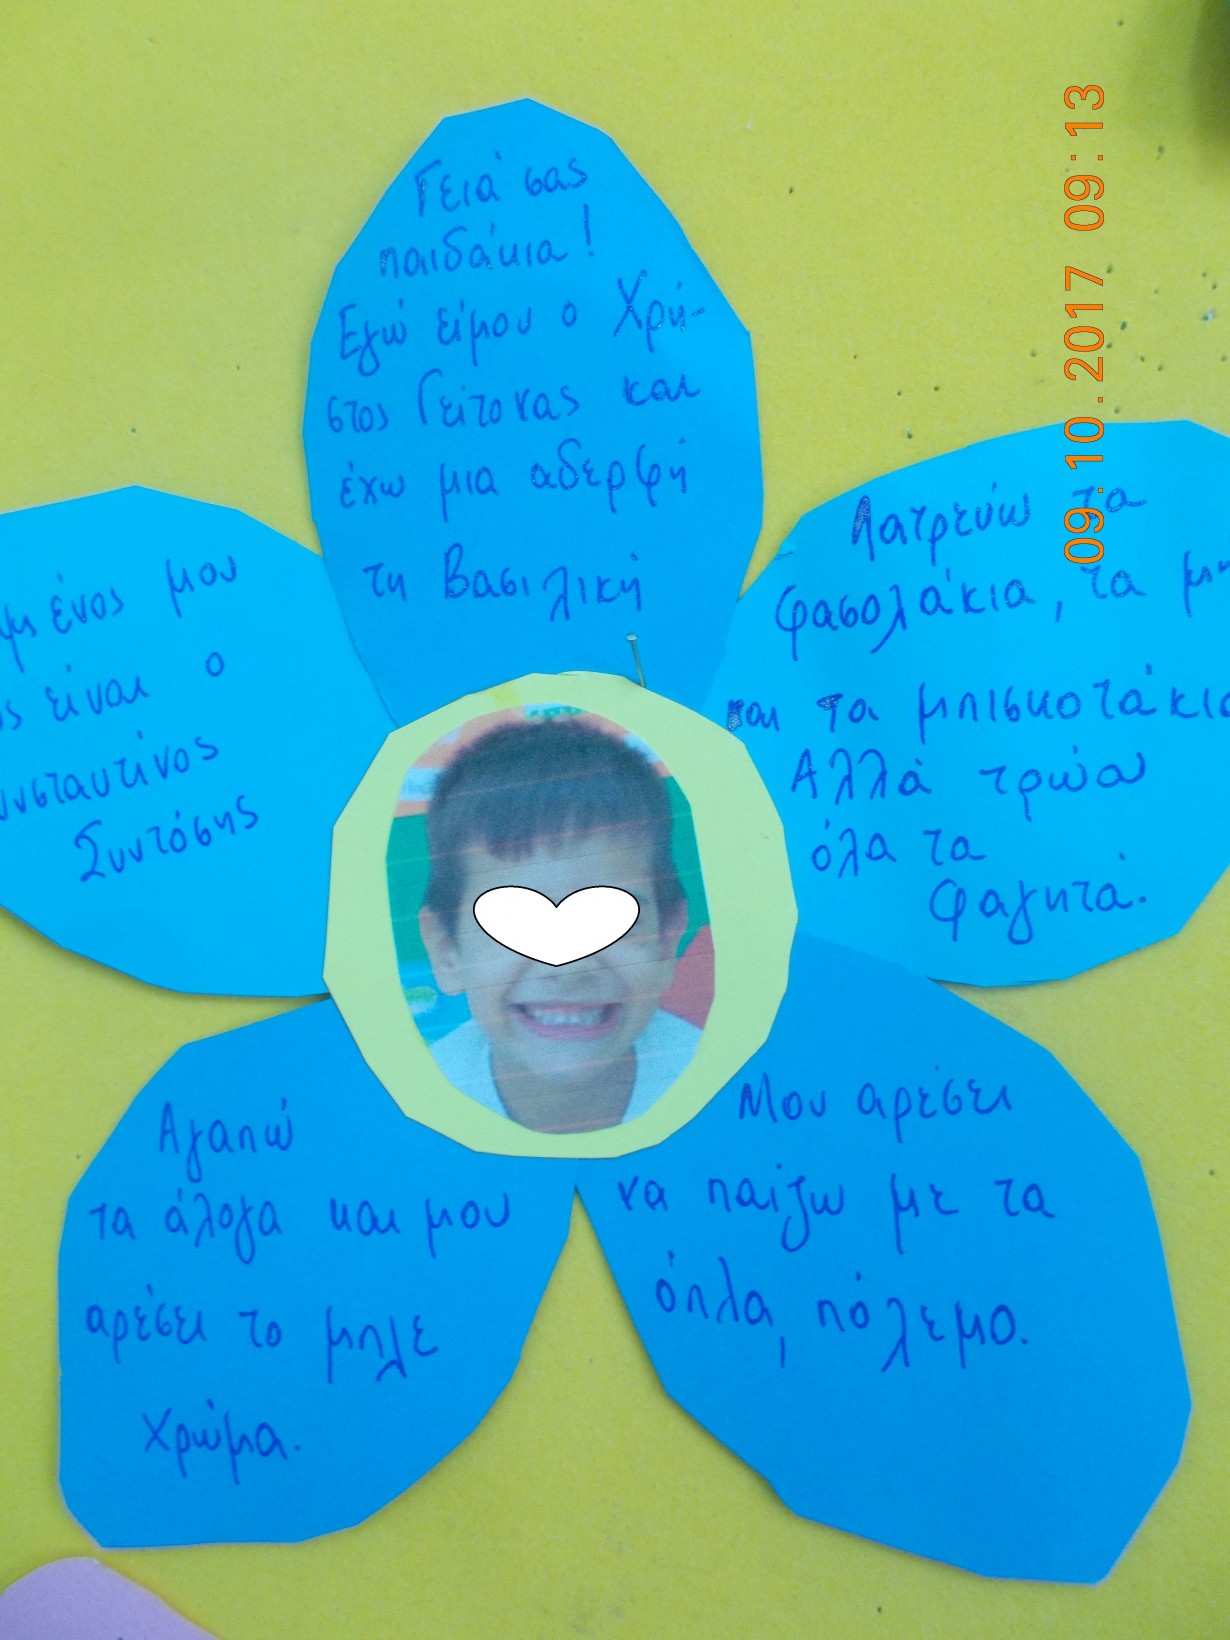 Γειά σας
παιδάκια!
Εγώ είμου ο Χρή-
στος Γείτονας και
έχω μια αδερφή
τη Βασιλική
Λατρεύω τα
φασολάκια, τα
και τα μπισκοτάκια
Αλλά τρώω
όλα τα
φαγητά.
Μου αρέσει
να παίζω με τα
όπλα, πόλεμο.
Αγαπώ
τα άλογα και μου
αρέσει το μπλε
χρώμα.
μου
είναι ο
Συντόσης
09.10.2017 09:13